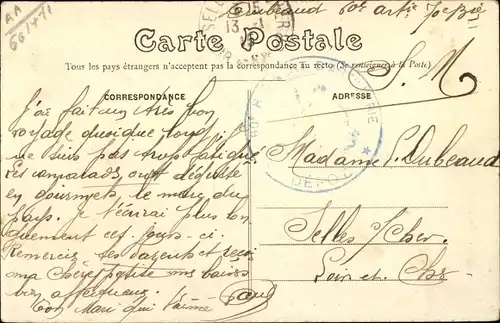 AA
66/471
Dubeaud 60e artie 7e Bie
13
Carte Postale
Tous les pays étrangers n'acceptent pas la correspondance au recto (Se renseigner à la Poste)
F. M.
CORRESPONDANCE
ADRESSE
DÉPOT
J'ai fait un très bon
voyage quoique long
ne suis pas trop fatigué
les camarades ont dégusté
en gourmets le marc du
pays. Je t'écrirai plus lon
guement ces jours-ci.
Remercie les parents et reçois
ma Chère petite mes baisers
bien affectueux.
Ton Mari qui t'aime
Paul
Madame P. Dubeaud
Selles s/Cher
Loir et Cher